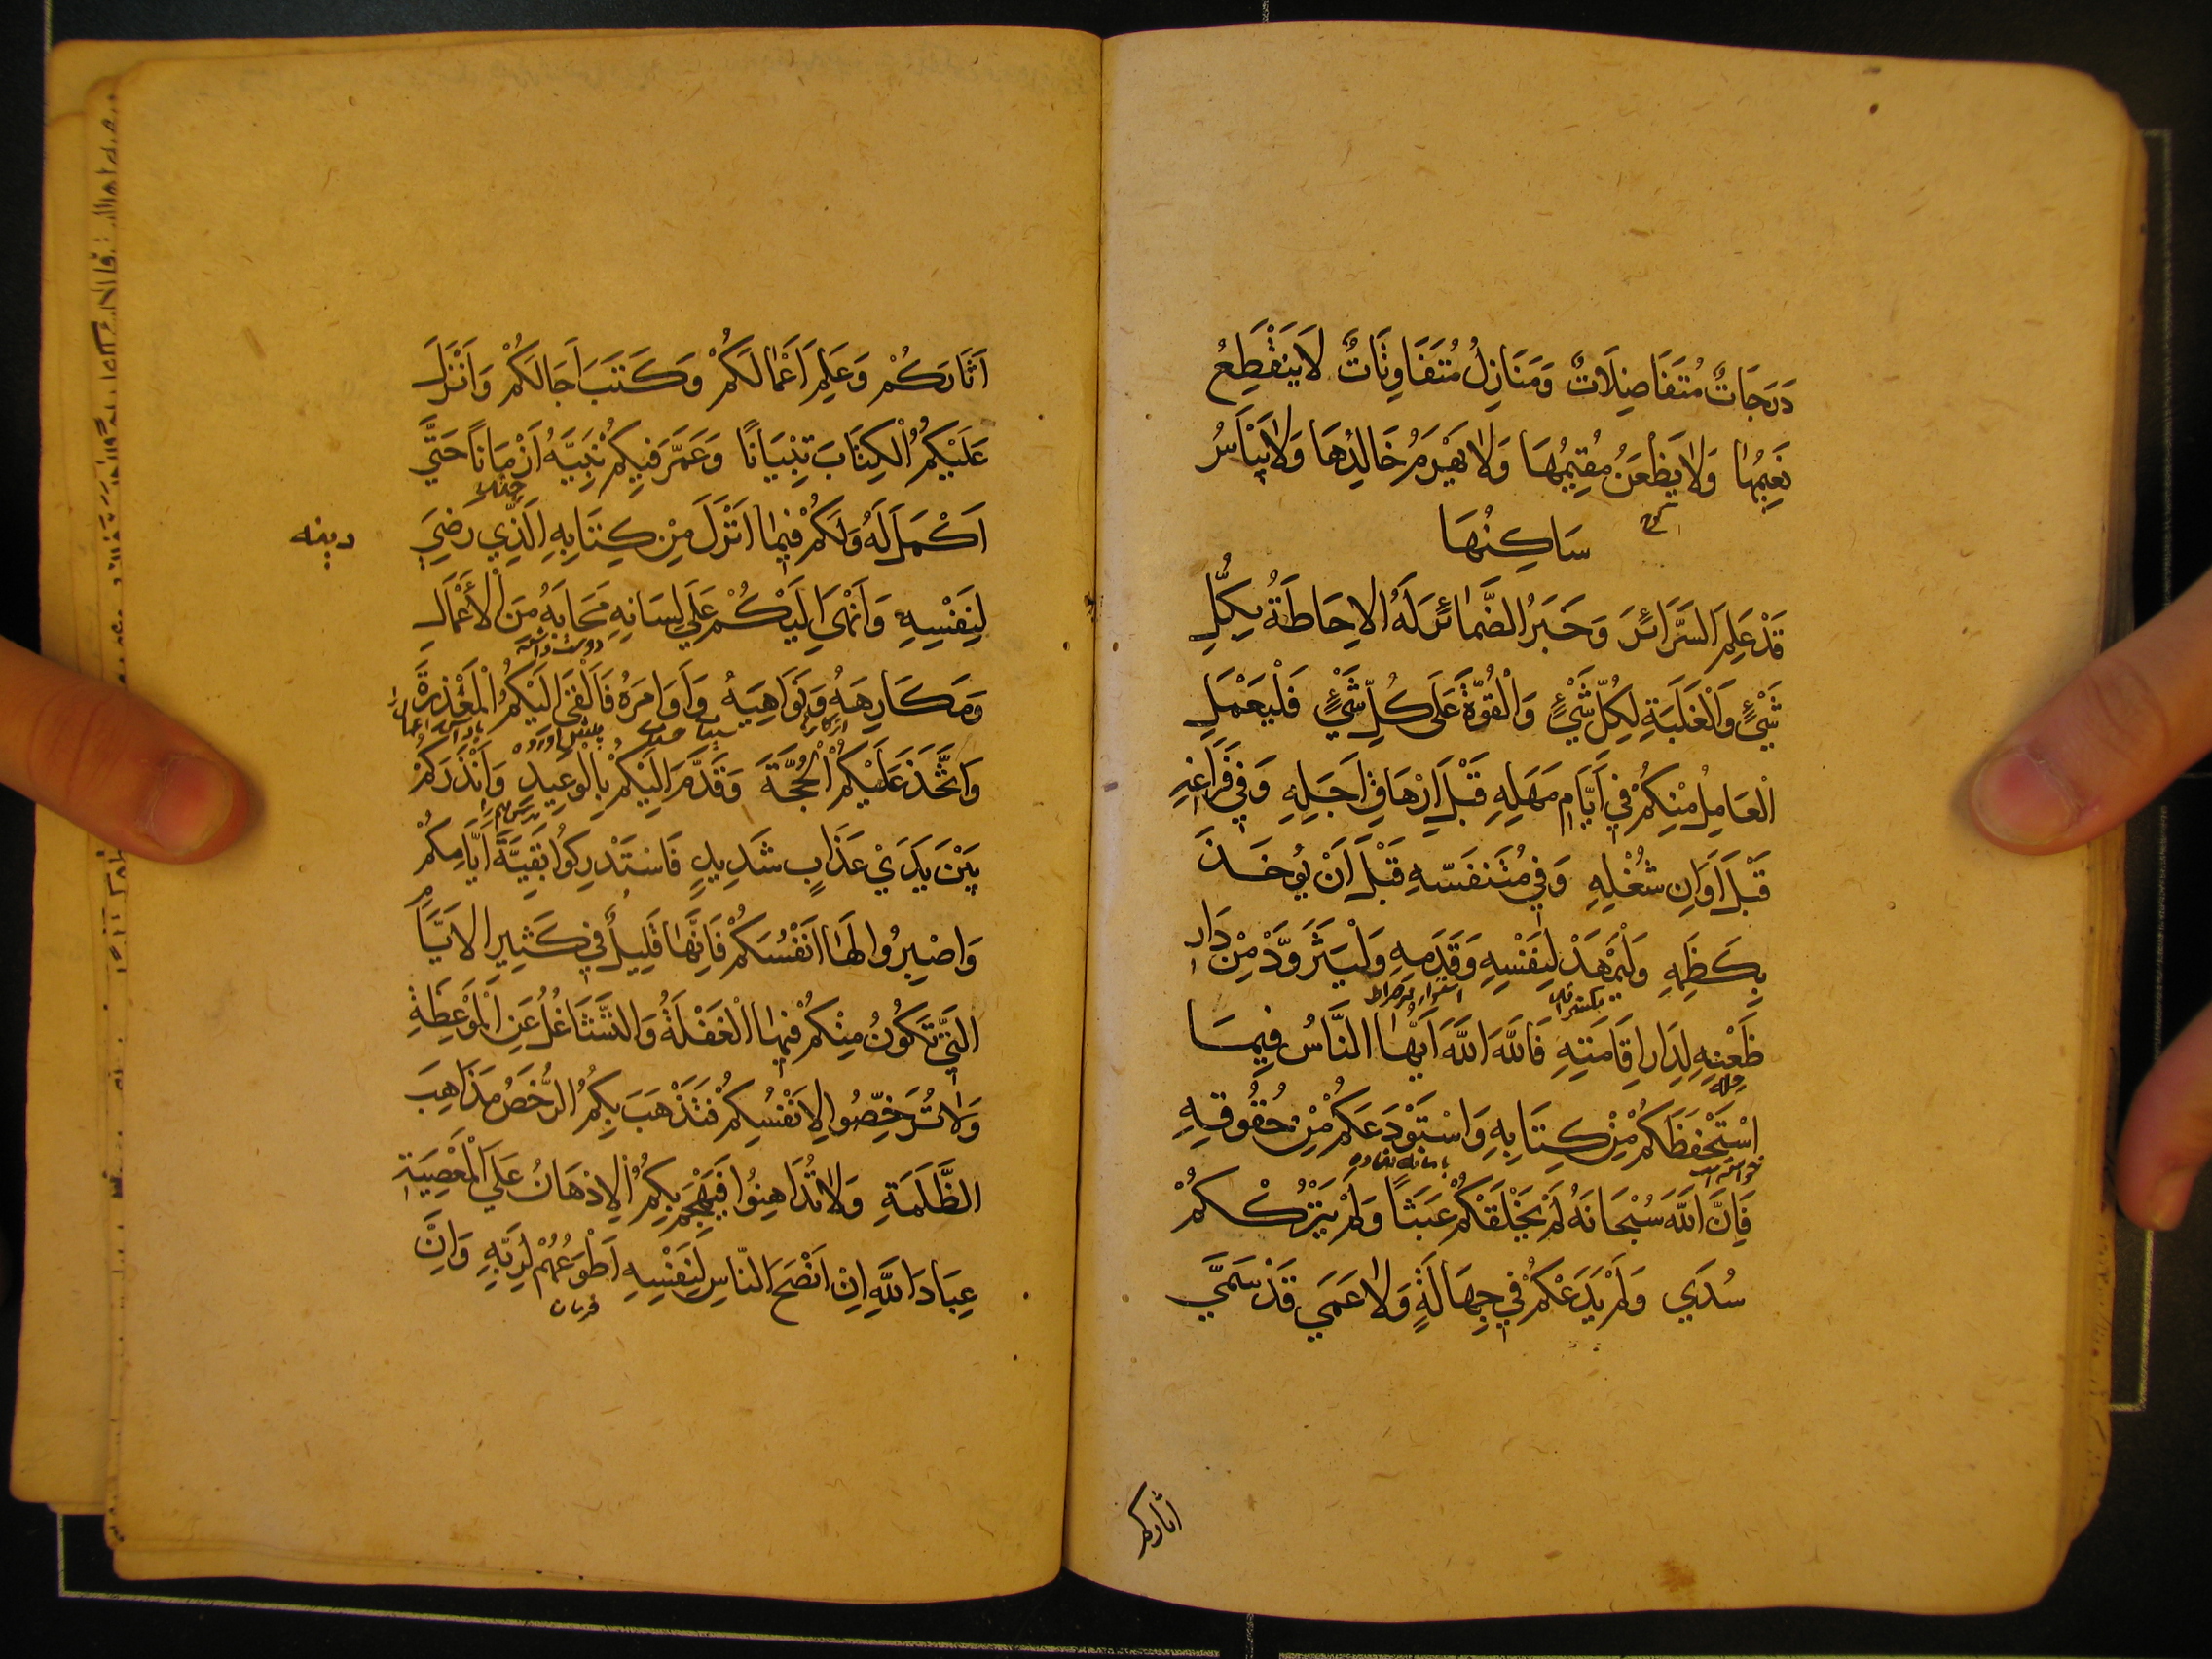 دَرَجَاتٌ مُتَفَاضِلَاتٌ وَمَنَازِلُ مُتَفَاوِتَاتٌ لَا يَنْقَطِعُ
نَعِيمُهَا وَلَا يَظْعَنُ مُقِيمُهَا وَلَا يَهْرَمُ خَالِدُهَا وَلَا يَبْأَسُ
سَاكِنُهَا
قَدْ عَلِمَ السَّرَائِرَ وَخَبَرَ الضَّمَائِرَ لَهُ الاِحَاطَةُ بِكُلِّ
شَيْءٍ وَالْغَلَبَةِ لِكُلِّ شَيْءٍ وَالْقُوَّةُ عَلَى كُلِّ شَيْءٍ فَلْيَعْمَلِ
الْعَامِلُ مِنْكُمْ فِي أَيَّامِ مَهَلِهِ قَبْلَ اِرْهَاقِ اَجَلِهِ وَفِي فَرَاغِهِ
قَبْلَ اَوَانِ شُغْلِهِ وَفِي مُتَنَفَّسِهِ قَبْلَ اَنْ يُؤخَذَ
بِكَظَمِهِ وَلْيُمَهِّدْ لِنَفْسِهِ وَقَدَمِهِ وَلْيَتَزَوَّدْ مِنْ دَارِ
ظَعْنِهِ لِدَارِ اِقَامَتِهِ فَاللّٰهَ اللّٰهَ اَيُّهَا النَّاسُ فِيمَا
اسْتَحْفَظَكُمْ مِنْ كِتَابِهِ وَاسْتَوْدَعَكُمْ مِنْ حُقُوقِهِ
فَاِنَّ اللّٰهَ سُبْحَانَهُ لَمْ يَخْلُقْكُمْ عَبَثًا وَلَمْ يَتْرُكْكُمْ
سُدَي وَلَمْ يَدَعْكُمْ فِي جَهَالَةٍ وَلَا عَمَي قَدْ سَمَّي
اثاركم
اَثَارَكُمْ وَعَلِمَ اَعْمَالَكُمْ وَكَتَبَ اَجَالَكُمْ وَاَنْزَلَ
عَلَيْكُمُ الْكِتَابَ تِبْيَانًا وَعَمَّرَ فِيكُمْ نَبِيَّهُ اَزْمَانًا حَتَّي
اَكْمَلَ لَهُ وَلَكُمْ فِيمَا اَنْزَلَ مِنْ كِتَابِهِ الَّذِي رَضِيَ
دينه
لِنَفْسِهِ وَاَنْهَي اِلَيْكُمْ عَلَي لِسَانِهِ مَحَابَّهُ مِنَ الْأَعْمَالِ
دوست داشته
وَمَكَارِهَهُ وَنَوَاهِيَهُ وَاَوَامِرَهُ فَاَلْقَي اِلَيْكُمُ الْمَعْذِرَةَ
وَاتَّخَذَ عَلَيْكُمُ الْحُجَّةَ وَقَدَّمَ اِلَيْكُمْ بِالْوَعِيدِ وَاَنْذَرَكُمْ
بَيْنَ يَدَيْ عَذَابٍ شَدِيدٍ فَاسْتَدْرِكُوا بَقِيَّةَ اَيَّامِكُمْ
وَاصْبِرُوا لَهَا اَنْفُسَكُمْ فَاِنَّهَا قَلِيلٌ فِي كَثِيرِ الاَيَّامِ
الَّتِي تَكُونُ مِنْكُمْ فِيهَا الْغَفْلَةُ وَالتَّشَاغُلُ عَنِ الْمَوْعِظَةِ
وَلَا تُرَخِّصُوا لِاَنْفُسِكُمْ فَتَذْهَبَ بِكُمُ الرُّخَصُ مَذَاهِبَ
الظَّلَمَةِ وَلَا تُدَاهِنُوا فَيَهْجُمَ بِكُمُ الْاِدْهَانُ عَلَي الْمَعْصِيَةِ
عِبَادَ اللّٰهِ اِنَّ اَنْصَحَ النَّاسِ لِنَفْسِهِ اَطْوَعُهُمْ لِرَبِّهِ وَاِنَّ